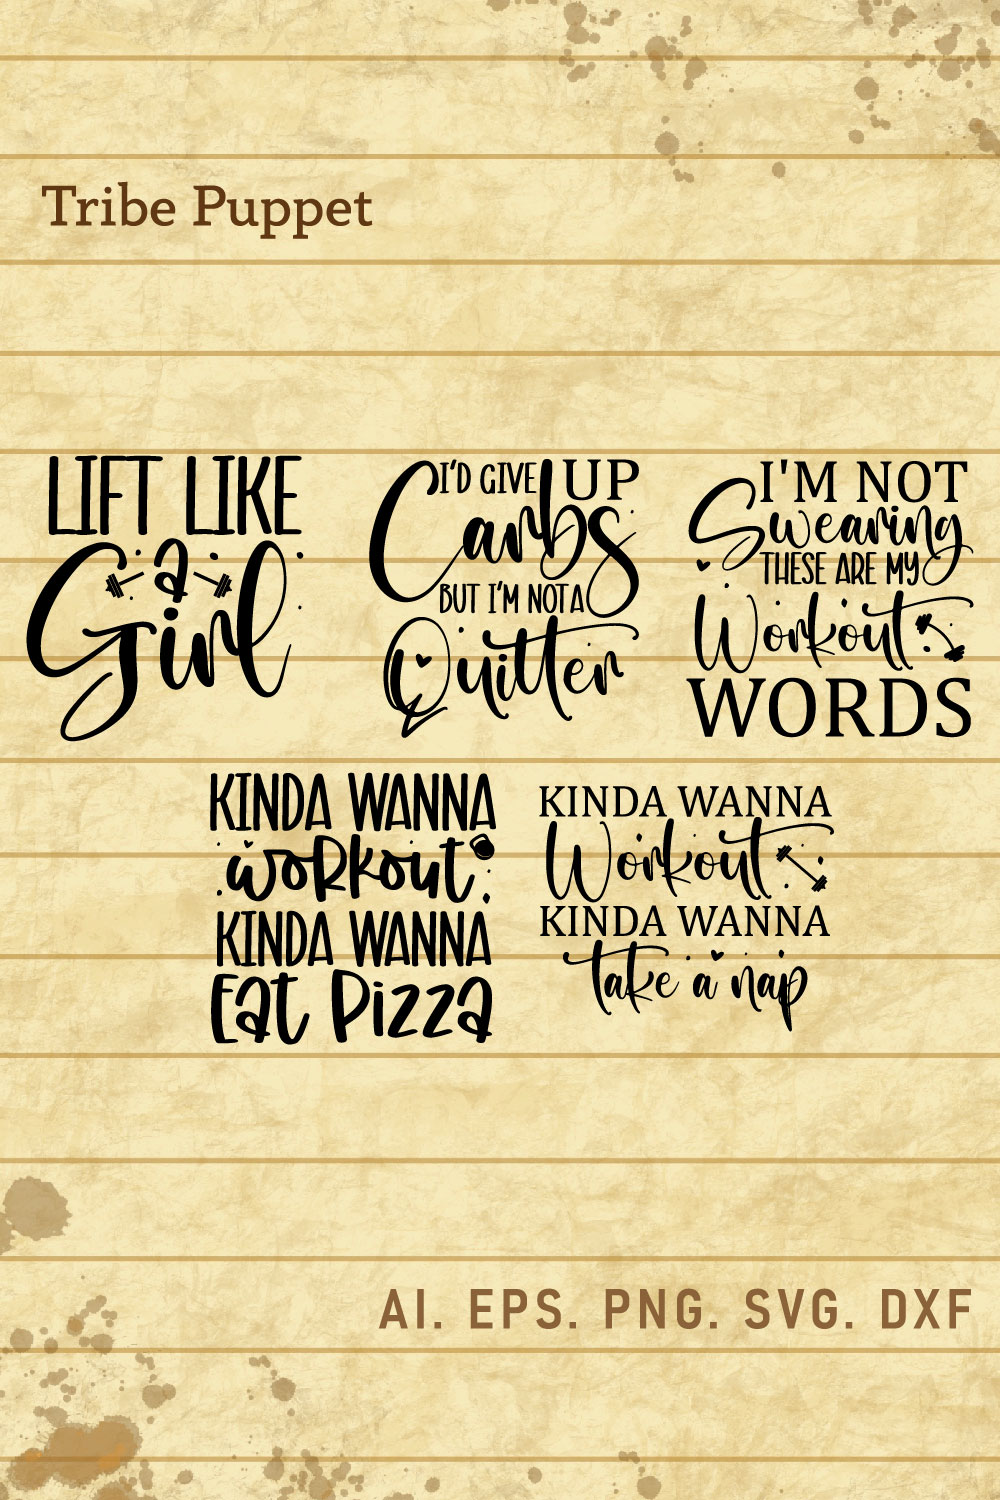 Tribe Puppet
LIFT LIKE
a
Girl
I'D GIVE UP
Carbs
BUT I'M NOT A
Quitter
I'M NOT
Swearing
THESE ARE MY
Workout
WORDS
KINDA WANNA
workout
KINDA WANNA
Eat Pizza
KINDA WANNA
Workout
KINDA WANNA
take a nap
AI. EPS. PNG. SVG. DXF